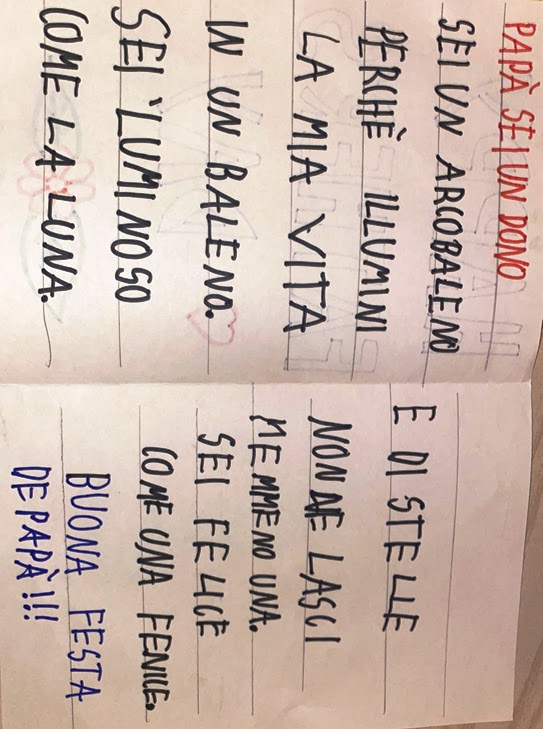 PAPÀ SEI UN DONO
SEI UN ARCOBALENO
PERCHÈ ILLUMINI
LA MIA VITA
IN UN BALENO.
SEI LUMINOSO
COME LA LUNA.
E DI STELLE
NON NE LASCI
NEMMENO UNA.
SEI FELICE
COME UNA FENICE.
BUONA FESTA
DE PAPÀ!!!